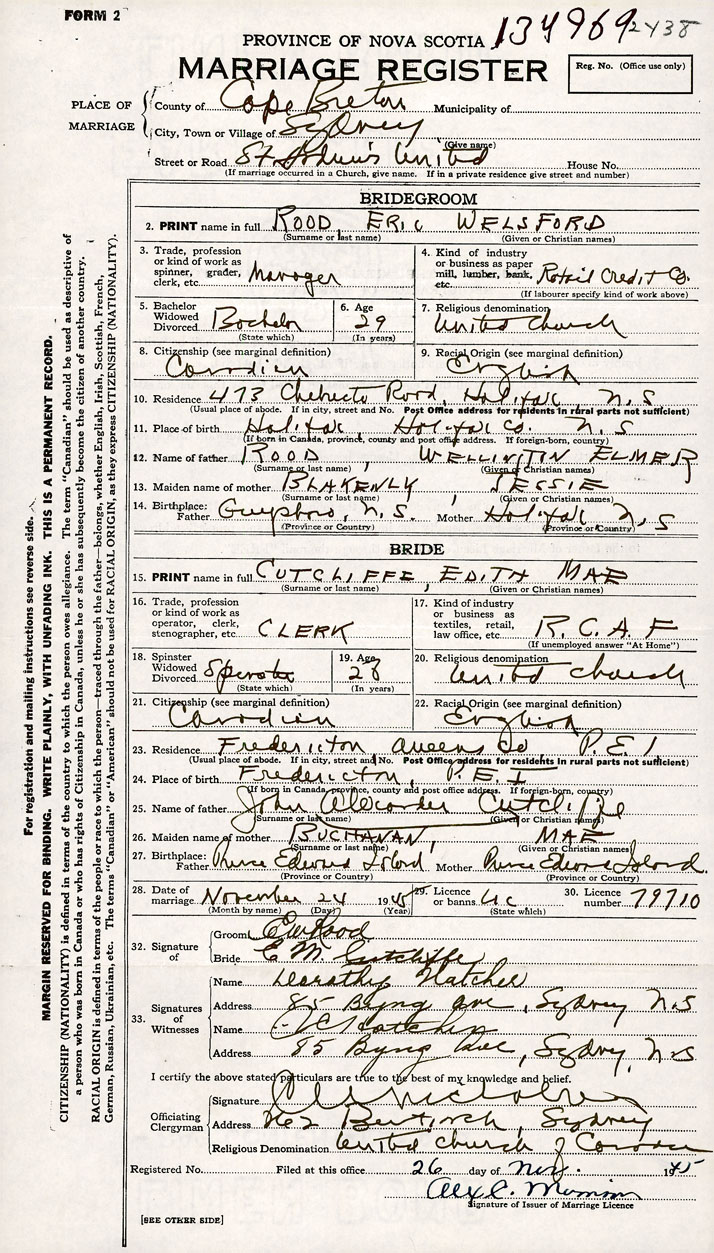 FORM 2
134969 2438
PROVINCE OF NOVA SCOTIA
MARRIAGE REGISTER
Reg. No. (Office use only)
PLACE OF MARRIAGE
County of Cape Breton Municipality of
City, Town or Village of Sydney
(Give name)
Street or Road St. Andrew's United House No.
(If marriage occurred in a Church, give name. If in a private residence give street and number)
BRIDEGROOM
2. PRINT name in full ROOD ERIC WELSFORD
(Surname or last name) (Given or Christian names)
3. Trade, profession or kind of work as spinner, grader, clerk, etc. Manager
4. Kind of industry or business as paper mill, lumber, bank, etc. Retail Credit Co.
(If labourer specify kind of work above)
5. Bachelor Widowed Divorced Bachelor
(State which)
6. Age 29
(In years)
7. Religious denomination United Church
8. Citizenship (see marginal definition) Canadian
9. Racial Origin (see marginal definition) English
10. Residence 473 Chebucto Road, Halifax, N.S
(Usual place of abode. If in city, street and No. Post Office address for residents in rural parts not sufficient)
11. Place of birth Halifax, Halifax Co. N.S
(If born in Canada, province, county and post office address. If foreign-born, country)
12. Name of father ROOD, WELLINTIN ELMER
(Surname or last name) (Given or Christian names)
13. Maiden name of mother BLAKENLY, JESSIE
(Surname or last name) (Given or Christian names)
14. Birthplace: Father Guysboro, N.S. Mother Halifax N,S
(Province or Country) (Province or Country)
BRIDE
15. PRINT name in full CUTCLIFFE, EDITH MAE
(Surname or last name) (Given or Christian names)
16. Trade, profession or kind of work as operator, clerk, stenographer, etc. CLERK
17. Kind of industry or business as textiles, retail, law office, etc. R.C.A.F
(If unemployed answer "At Home")
18. Spinster Widowed Divorced
(State which)
19. Age 28
(In years)
20. Religious denomination United Church
21. Citizenship (see marginal definition) Canadian
22. Racial Origin (see marginal definition) English
23. Residence Fredericton Queens Co P.E.I
(Usual place of abode. If in city, street and No. Post Office address for residents in rural parts not sufficient)
24. Place of birth Fredericton, P.E.I
(If born in Canada, province, county and post office address. If foreign-born, country)
25. Name of father John Alexander Cutcliffe
(Surname or last name) (Given or Christian names)
26. Maiden name of mother BUCHANAN, MAE
(Surname or last name) (Given or Christian names)
27. Birthplace: Father Prince Edward Island Mother Prince Edward Island.
(Province or Country) (Province or Country)
28. Date of marriage November 24 1945
(Month by name) (Day) (Year)
29. Licence or banns Lic
(State which)
30. Licence number 79710
32. Signature of
Groom EWRood
Bride E M Cutcliffe
33. Signatures of Witnesses
Name Dorothy Hatcher
Address 85 Byng Ave, Sydney N.S
Name Hatcher
Address 85 Byng Ave, Sydney, N.S.
I certify the above stated particulars are true to the best of my knowledge and belief.
Officiating Clergyman
Signature
Address Sydney
Religious Denomination United Church of Canada
Registered No. Filed at this office 26 day of Nov. 1945
Alex C.
Signature of Issuer of Marriage Licence
[SEE OTHER SIDE]
For registration and mailing instructions see reverse side.
MARGIN RESERVED FOR BINDING. WRITE PLAINLY, WITH UNFADING INK. THIS IS A PERMANENT RECORD.
CITIZENSHIP (NATIONALITY) is defined in terms of the country to which the person owes allegiance. The term "Canadian" should be used as descriptive of
a person who was born in Canada or who has rights of Citizenship in Canada, unless he or she has subsequently become the citizen of another country.
RACIAL ORIGIN is defined in terms of the people or race to which the person—traced through the father—belongs, whether English, Irish, Scottish, French,
German, Russian, Ukrainian, etc. The terms "Canadian" or "American" should not be used for RACIAL ORIGIN, as they express CITIZENSHIP (NATIONALITY).